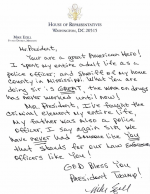 MIKE EZELL
HOUSE OF REPRESENTATIVES
WASHINGTON, DC 20515
Mr President,
You are a great American Hero!
I spent my entire adult life as a
police officer, and Sheriff of my home
County in Mississippi. What you are
doing sir is GREAT the war on drugs
has never worked until now!
Mr. President, I've fought the
criminal element my entire life,
my father was also a police
officer. I say again Sir, we
never had someone like you
that stands for our law
officers like you!
God Bless You
President Trump!
Mike Ezell